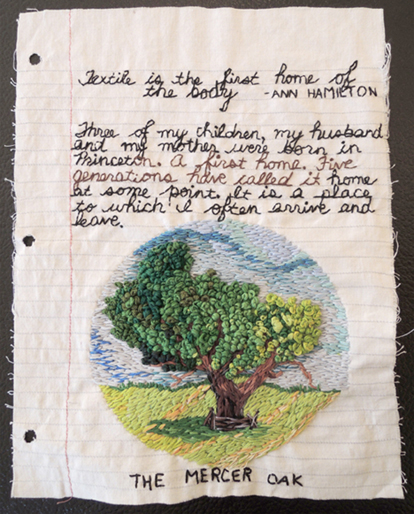 Textile is the first home of
the body -ANN HAMILTON
Three of my children, my husband
and my mother were born in
Princeton. A first home. Five
generations have called it home
at some point. It is a place
to which I often arrive and
leave.
THE MERCER OAK